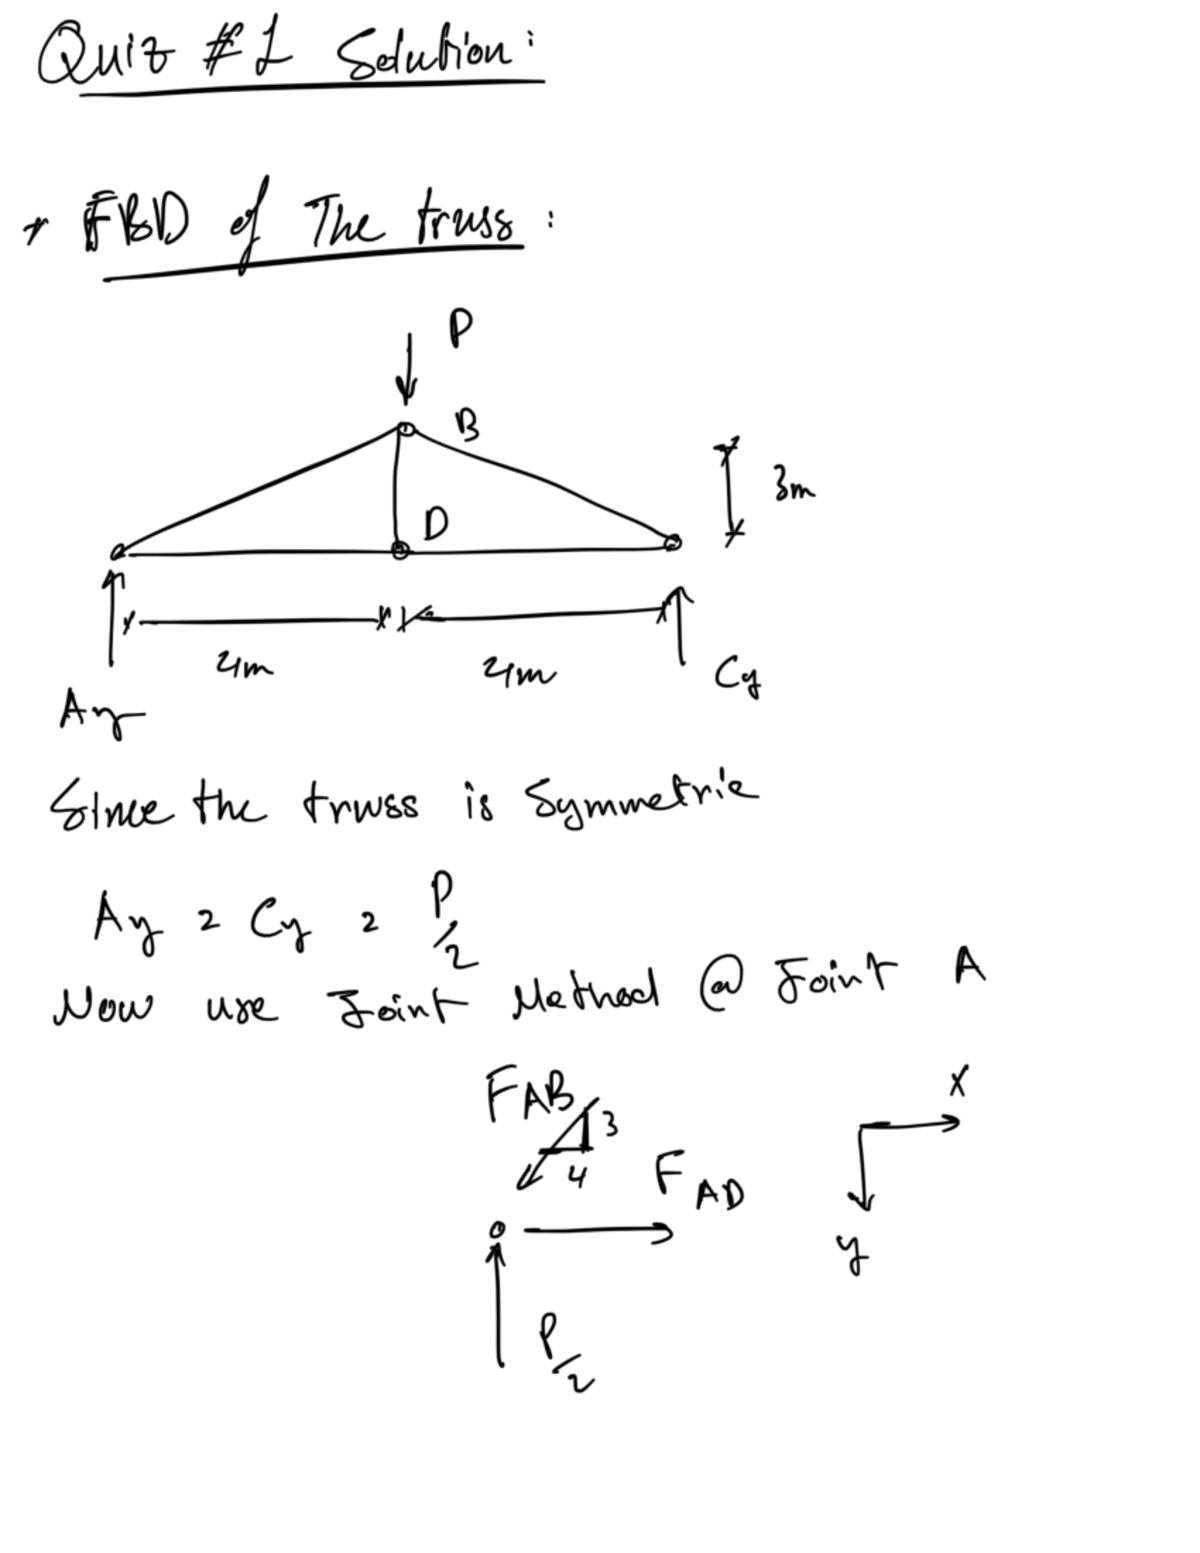 Quiz #1 Solution:
* FBD of The truss:
P
B
3m
D
4m
4m
Cy
Ay
Since the truss is Symmetric
Ay = Cy = P/2
Now use Joint Method @ Joint A
FAB
3
4
FAD
x
y
P/2